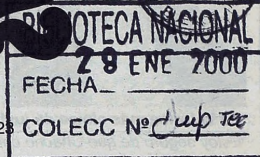 BIBLIOTECA NACIONAL
28 ENE 2000
FECHA
COLECC Nº